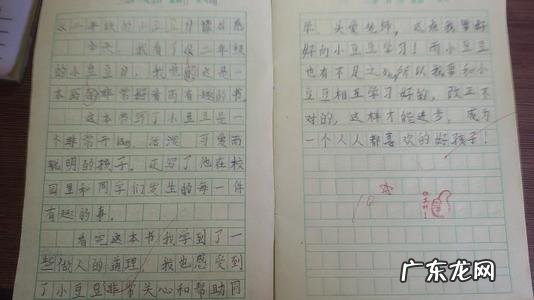 《二年级的小豆豆》读后感
今天，我看了《二年级
的小豆豆》，我觉的这是一
本写的非常好看而有趣的书。
这本书写了小豆豆是一
个非常开朗、活泼、可爱而
聪明的孩子。还写了他在校
园里和同学们发生的每一件
有趣的事。
看完这本书我学到了一
些做人的道理，我也感受到
了小豆豆非常关心和帮助同
学、关爱老师，这点我要好
好向小豆豆学习！而小豆豆
也有不足之处所以我要和小
豆豆相互学习好的，改正不
对的，这样才能进步，成为
一个人人都喜欢的好孩子！
广东龙网